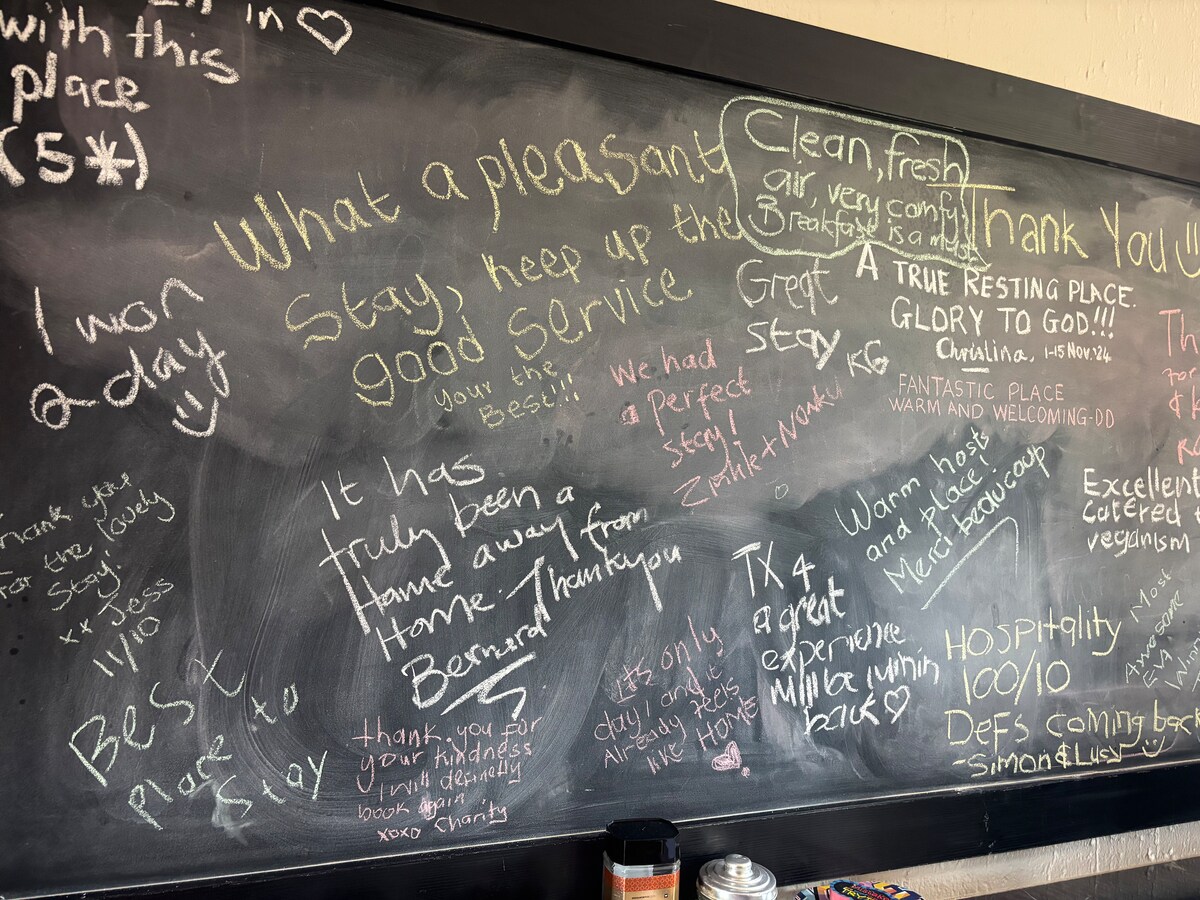 in ♡
with this
place
(5*)
I won
a day
What a pleasant
Stay, keep up the
good service
your the
Best!!!
Clean, fresh
air, very comfy
Breakfast is a must
Thank You
Great
stay KG
A TRUE RESTING PLACE.
GLORY TO GOD!!!
Christina, 1-15 Nov.'24
FANTASTIC PLACE
WARM AND WELCOMING-DD
We had
a perfect
stay!
Thank you
for the lovely
Stay!
xx Jess
11/10
Best
place to
Stay
It has
truly been a
Home away from
Home. Thankyou
Bernard
thank you for
your kindness
I will definetly
book again
xoxo Charity
It's only
day 1 and it
Already feels
like HOME
TX 4
a great
experience
back ♡
Warm hosts
and place!
Merci beaucoup
Excellent
catered
veganism
HOSPitality
100/10
Defs coming back
-Simon & Lucy
Most
Awesome